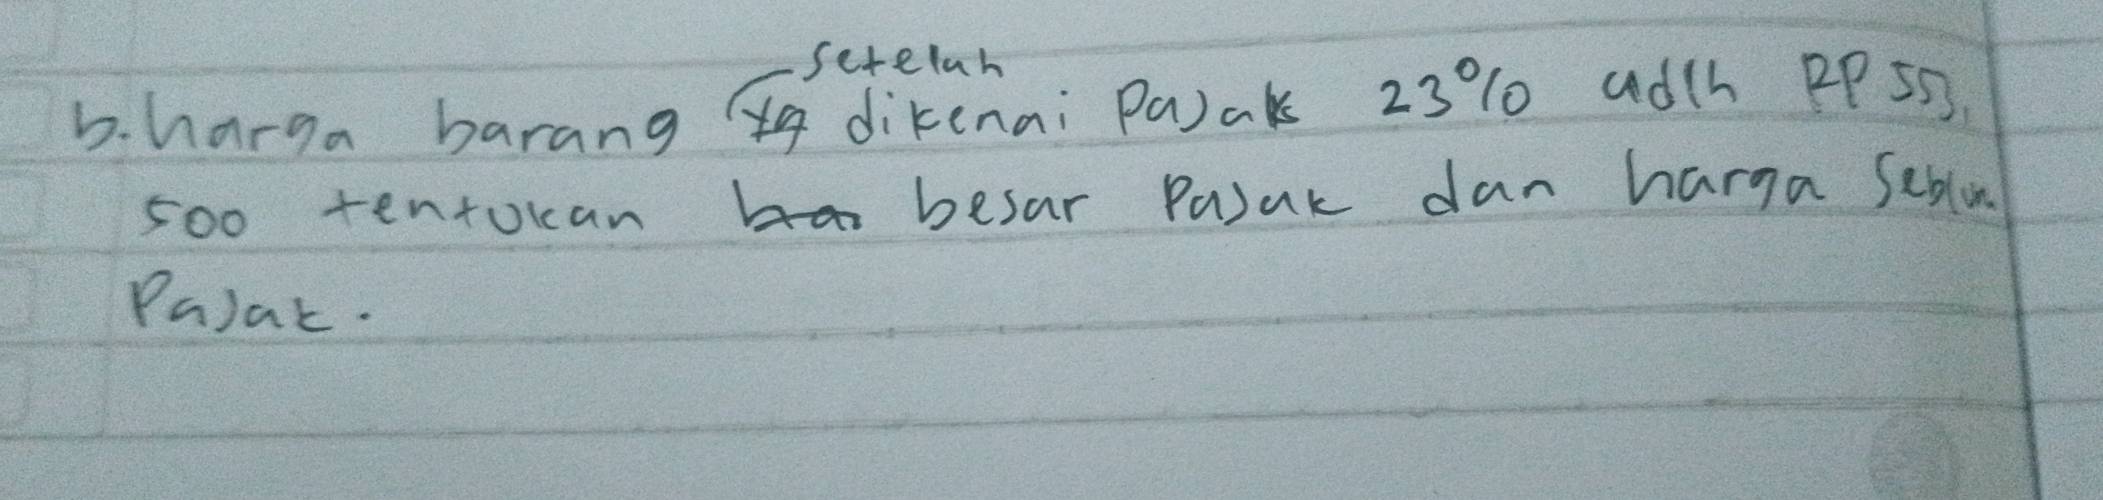 setelah
b. harga barang yg dikenai Pajak 23% adlh RP 553.
500 tentukan ha besar Pajak dan harga seblum
Pajak.